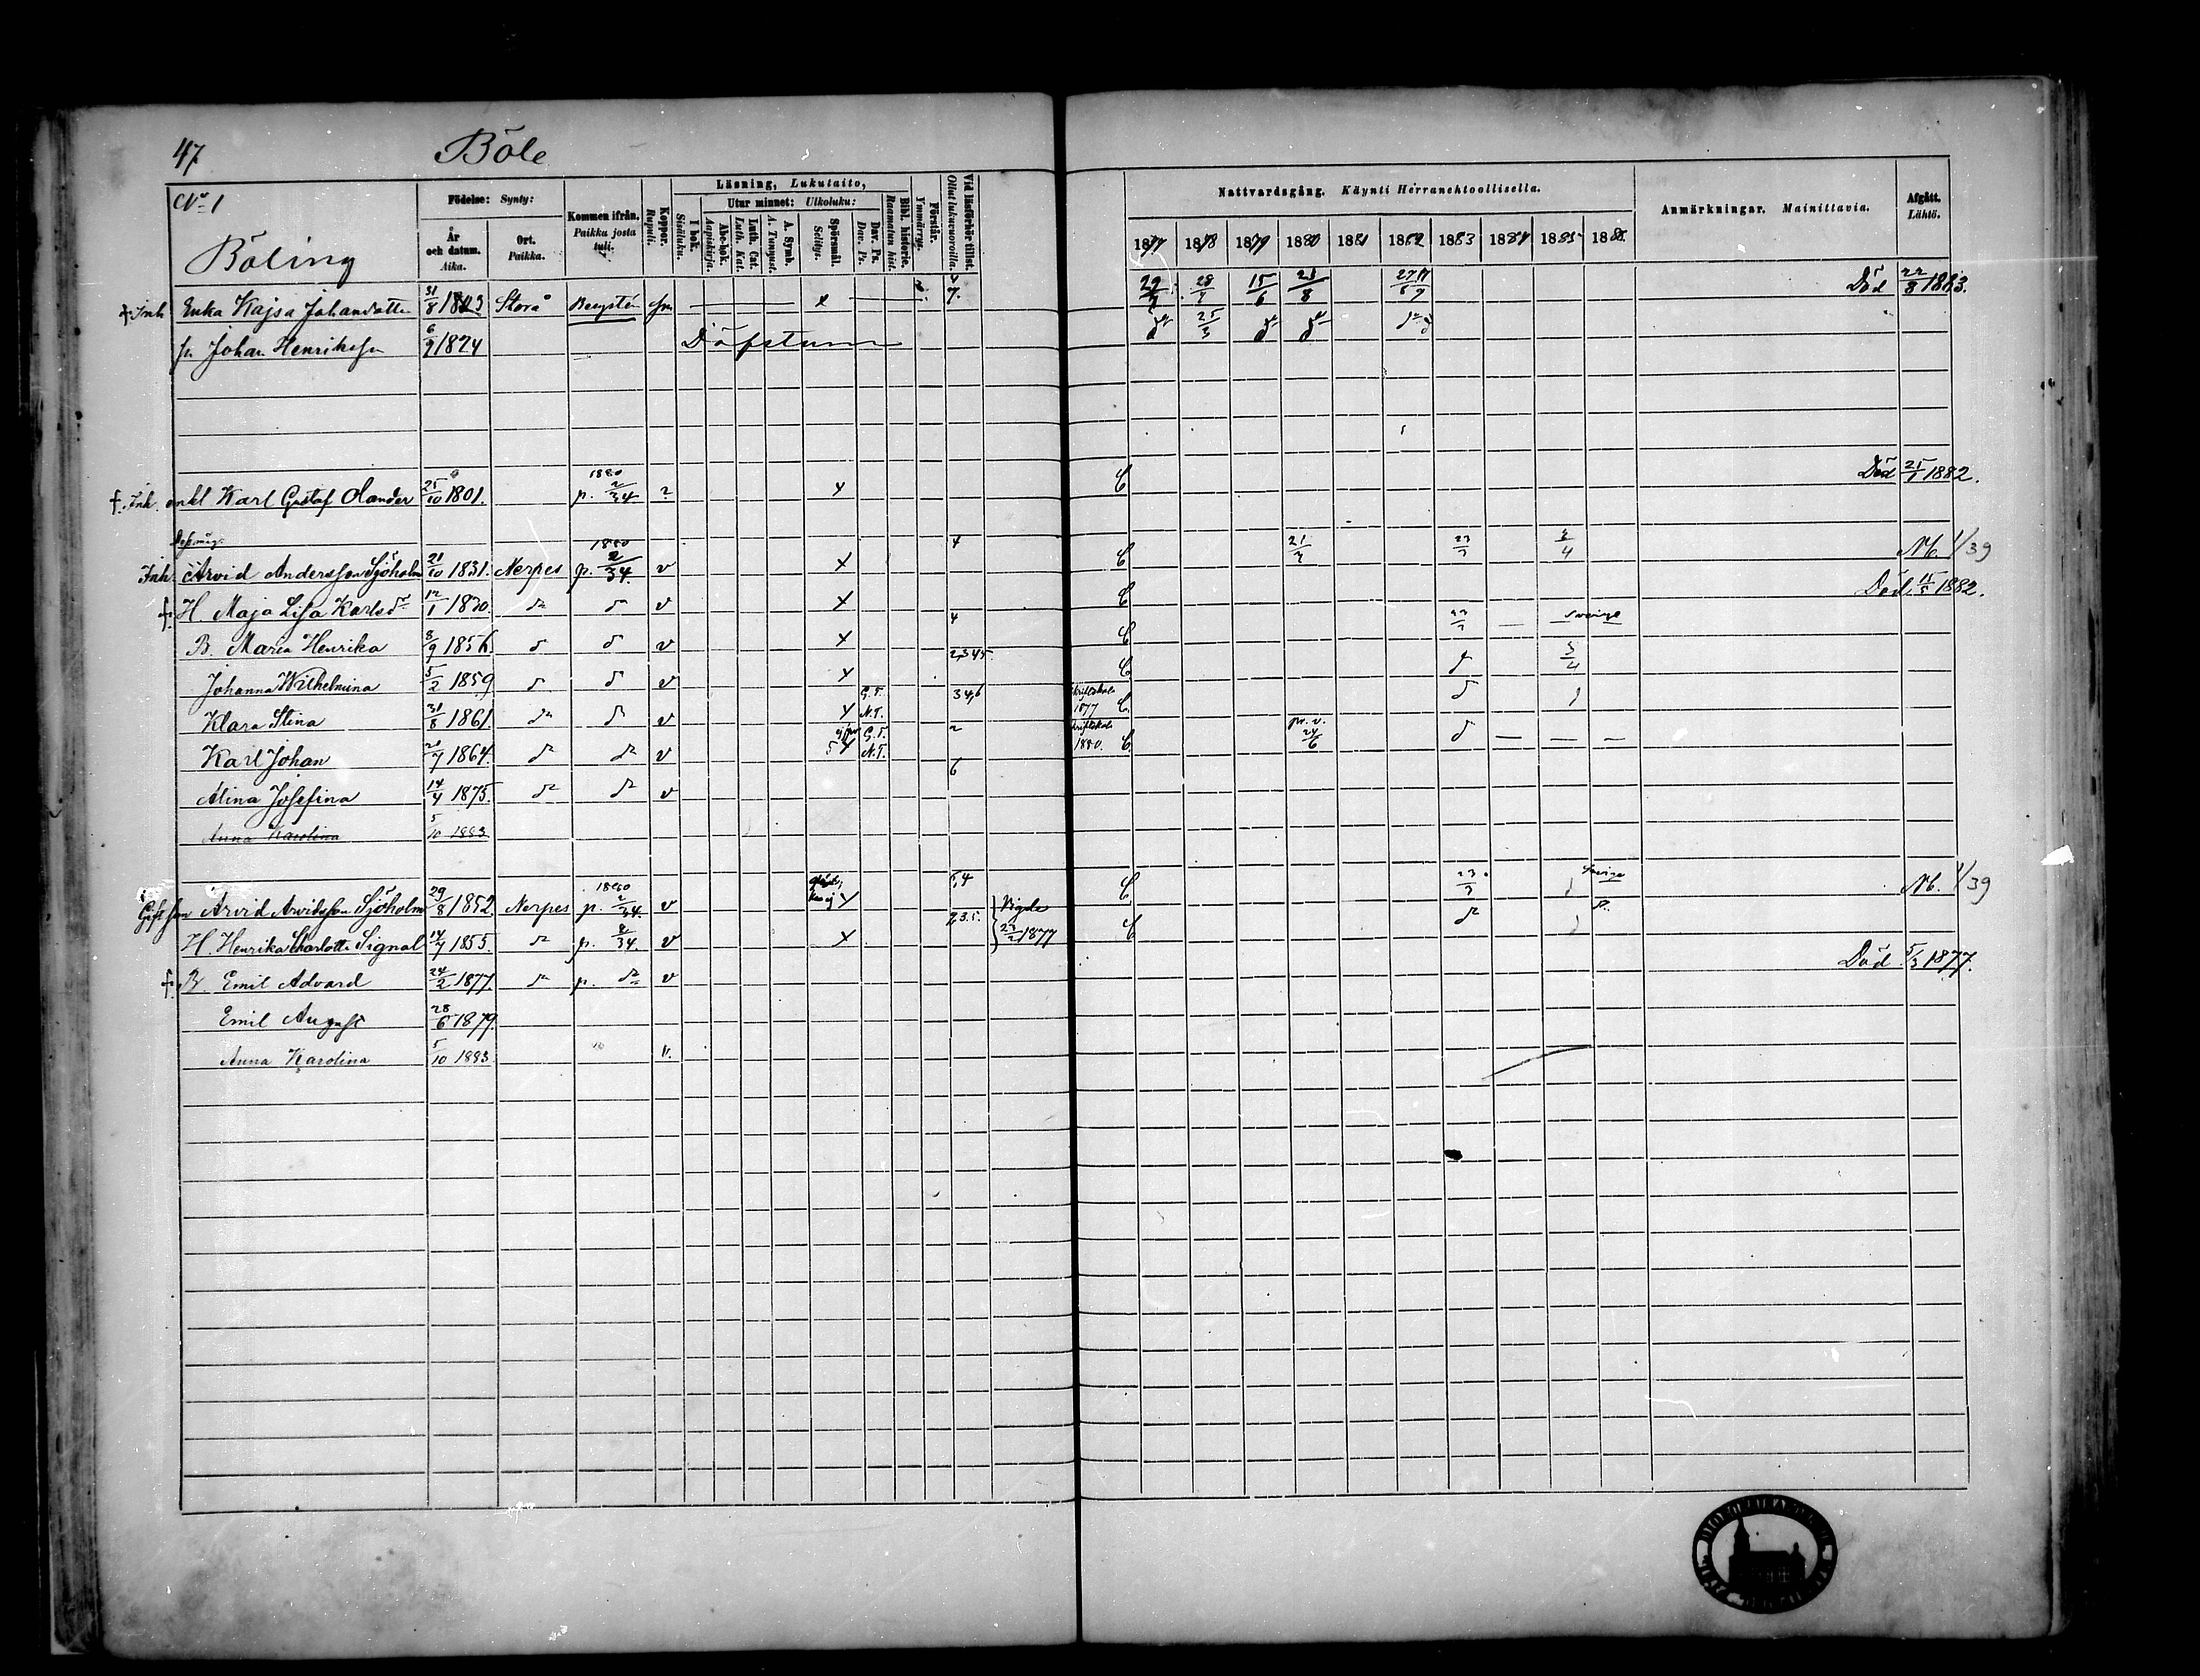 47 Böle
No 1
Böling
Födelse: Synty:
År och datum. Aika.
Ort. Paikka.
Kommen ifrån. Paikka josta tuli.
Koppor. Rupuli.
Läsning, Lukutaito,
I bok. Sisäluku.
Utur minnet: Ulkoluku:
Abc-bok. Aapiskirja.
Luth. Cat. Luth. Kat.
A. Symb. A. Tunnust.
Spörsmål. Selitys.
Dav. Ps. Dav. Ps.
Bibl. historie. Raamatun hist.
Förstår. Ymmärrys.
Vid läsförhör tillst. Ollut lukuvuoroilla.
Nattvardsgång. Käynti Herranehtoollisella.
1877 1878 1879 1880 1881 1882 1883 1884 1885 1886
Anmärkningar. Mainittavia.
Afgått. Lähtö.
† Inh. Enka Kajsa Johansdotter 31/8 1803 Storå x 7. 28/7 15/6 21/8 Död 22/8 1883.
sn Johan Henrikssn 6/9 1824 Döfstum 25/3
† Inh. enkl Karl Gustaf Olander 25/10 1801. 1880 p. 2/34 x C Död 25/1 1882.
Inh. Arvid Andersson Sjöholm 21/10 1831. Nerpes 1880 p. 2/34. v x 4 C 21/3 23/3 M. 1/39
† H. Maja Lisa Karlsdr 12/1 1830. v x C Död 15/5 1882.
B. Maria Henrika 8/9 1856. v x 4 C 23/3 — Sverige
Johanna Wilhelmina 5/2 1859 v x 2,3,4,5. C 3/4
Klara Stina 31/8 1861. v x G.T. N.T. 3 4,6 Skriftskola 1877 C
Karl Johan 20/7 1864. v 5 x G.T. N.T. 2 Skriftskola 1880. C 24/6 — — —
Alina Josefina 14/4 1875. v 6
Anna Karolina 5/10 1883
Gift sn Arvid Arvidsson Sjöholm 29/8 1852. Nerpes 1880 p. 2/34. v x 5,4 Vigde 23/2 1877 C 23/3 Sverige M. 1/39
H. Henrika Charlotta Signal 14/7 1855. p. 2/34. v x 2,3.5. C
† B. Emil Advard 24/2 1877 p. v Död 5/3 1877.
Emil August 28/6 1879.
Anna Karolina 5/10 1883. v.